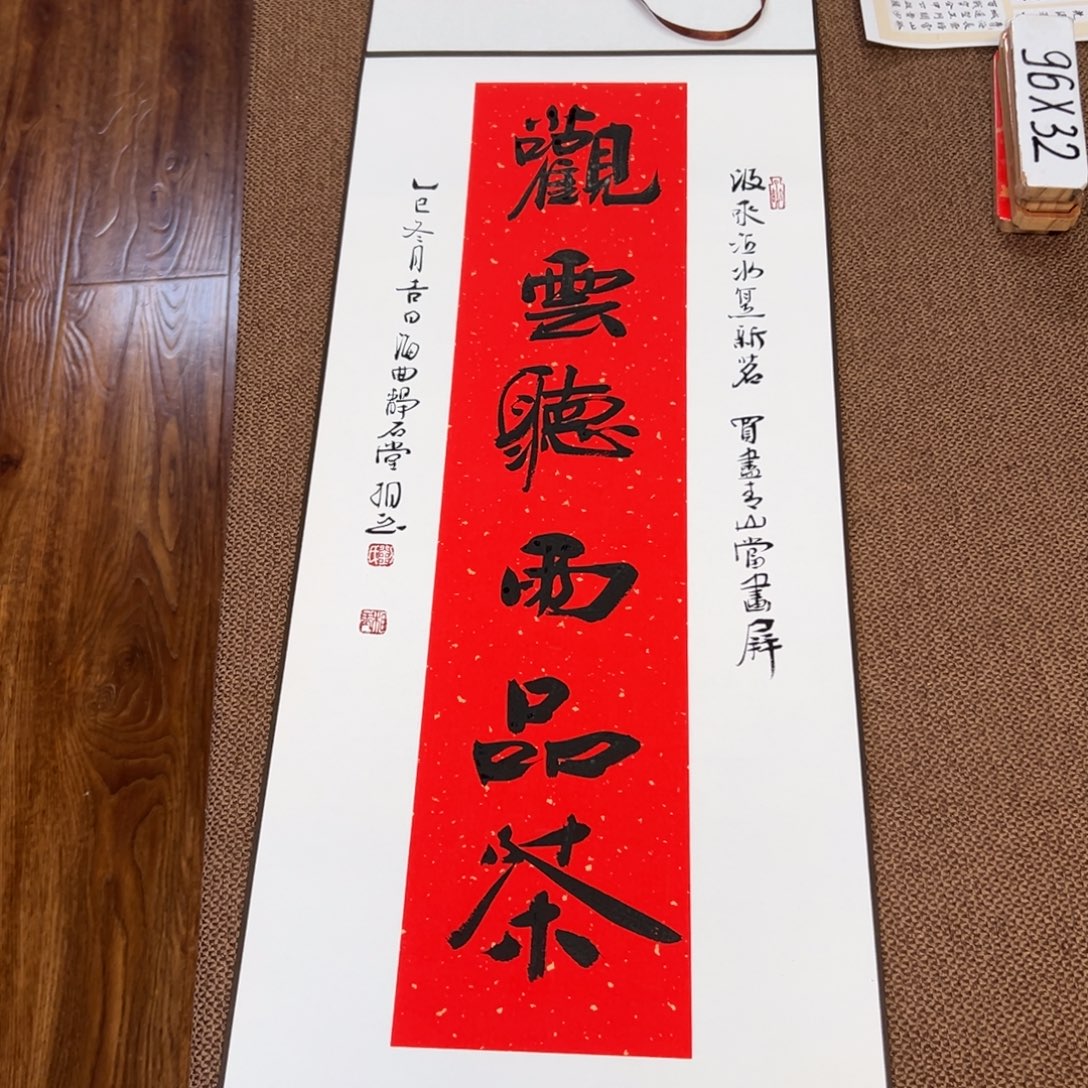 觀雲聽雨品茶
汲來江水烹新茗 買盡青山當畫屏
乙巳冬月吉日海曲靜石堂
96X32